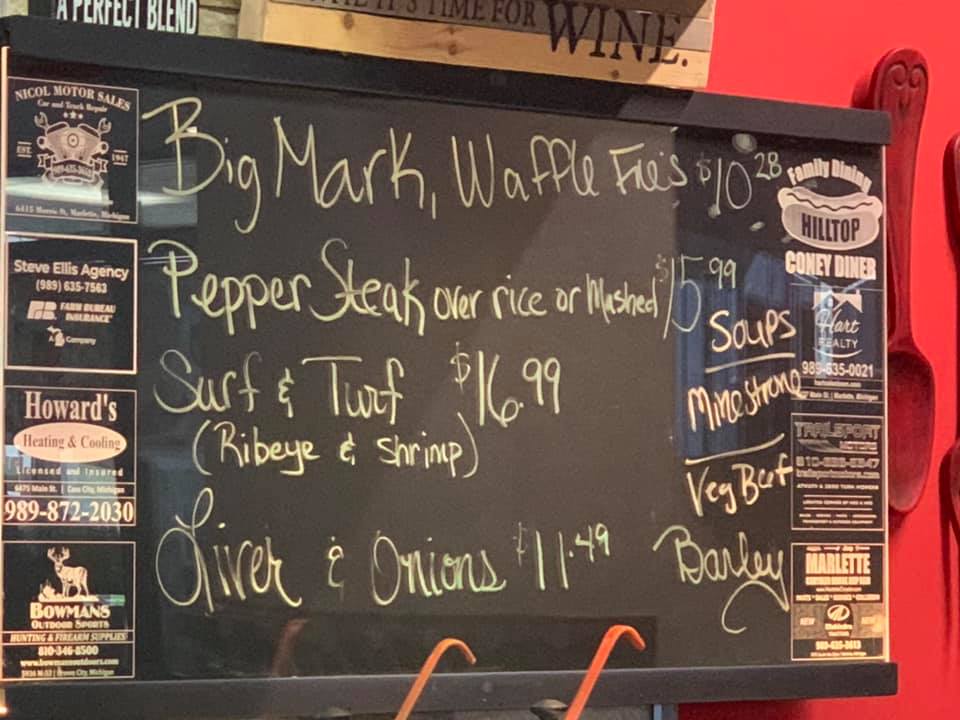 A PERFECT BLEND
IT'S TIME FOR
WINE.
NICOL MOTOR SALES
Car and Truck Repair
EST. 1947
989-635-3618
6415 Morris St. Marlette, Michigan
Steve Ellis Agency
(989) 635-7563
FARM BUREAU
INSURANCE
A Company
Howard's
Heating & Cooling
Licensed and Insured
6475 Main St. | Cass City, Michigan
989-872-2030
BOWMANS
OUTDOOR SPORTS
HUNTING & FIREARM SUPPLIES
810-346-8500
www.bowmansoutdoors.com
Big Mark, Waffle Frie's $10 28
Pepper Steak over rice or Mashed $15.99
Surf & Turf $16.99
(Ribeye & Shrimp)
Liver & Onions $11.49
Soups
Minestrone
Veg Beef
Barley
Family Dining
HILLTOP
CONEY DINER
Hart
REALTY
989-635-0021
Main St. | Marlette, Michigan
TRAILSPORT
MOTORS
MARLETTE
Mahindra